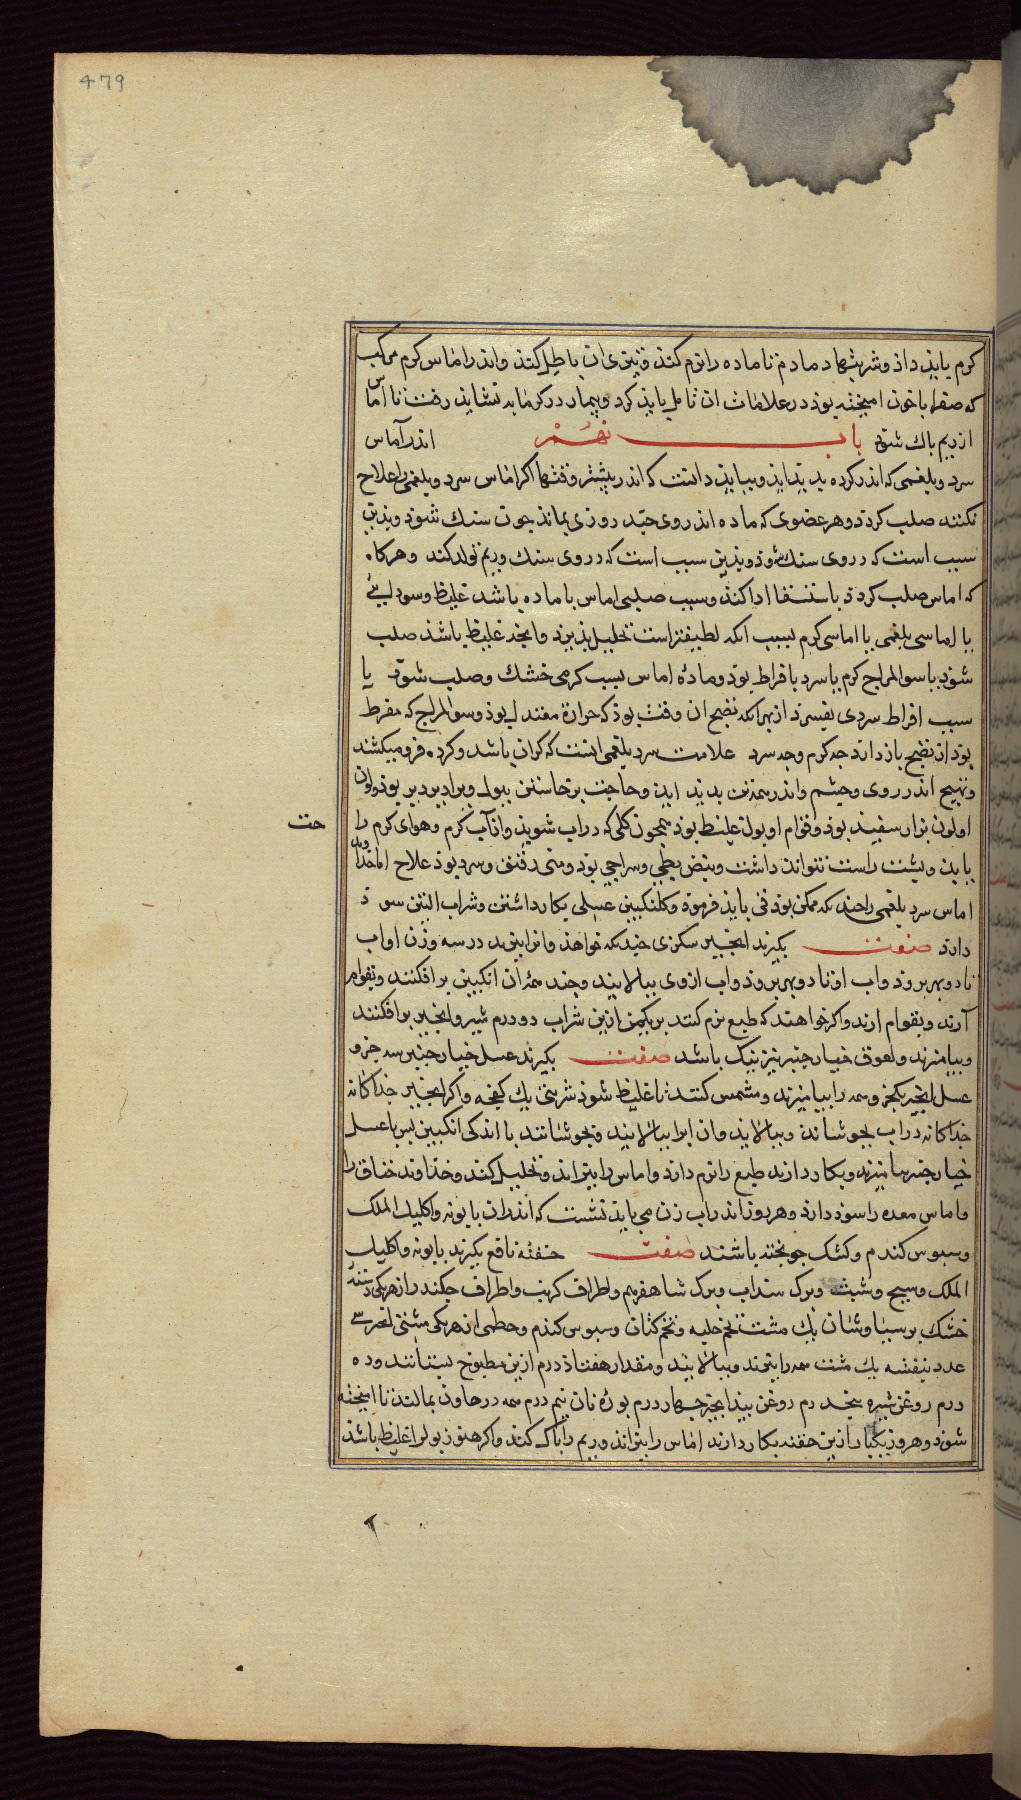 479
کرم یابذ داذ و شربتها دمادم تا ماده را نرم کند و تیزی ان باطل کند و اندر اماس کرم مرکب
که صفرا با خون امیخته بوذ در علامات ان تامل یابذ کرد و بیمار در کرمابه نشایذ رفت تا اماس
از ریم باک شوذ باب نهم اندر آماس
سرد و بلغمی که اندر کرده بدید ایذ و ببایذ دانست که اندر بیشتر وقتها اکر اماس سرد و بلغمی را علاج
نکنند صلب کردد و هر عضوی که ماده اندر وی جند روزی بماند جون سنک شوذ و بذین
سبب است که در وی سنک شوذ و بذین سبب است که در وی سنک و ریم تولد کند و هرکاه
که اماس صلب کردد باستسقا ادا کند و سبب صلبی اماس با ماده باشد غلیظ و سودایی
یا اماسی بلغمی یا اماسی کرم بسبب انکه لطیفتر است تحلیل بذیرد و انجه غلیظ باشذ صلب
شوذ یا سوالمزاج کرم یا سرد بافراط بوذ و مادهٔ اماس بسبب کرمی خشک و صلب شوذ یا
سبب افراط سردی بفسرد از بهر انکه نضج ان وقت بوذ که حرارة معتدل بوذ و سوالمزاج که مفرط
بوذ از نضج باز دارد جه کرم و جه سرد علامت سرد بلغمی انست که کران باشد و کرده فرو میکشد
و تهبج اندر روی و جشم و اندر همه تن بدید ایذ و حاجت برخاستن ببول و براز دیر دیر بوذ و لون
او لون بزار سفیذ بوذ و قوام او بول غلیظ بوذ همجون کلی که در اب شویذ و از آب کرم و هوای کرم را
حت
یابذ و بشت راست نتواند داشت و نبض بطی و سراجی بوذ و منی رقیق و سرد بوذ علاج اما
اماس سرد بلغمی را جندانکه ممکن بوذ قی بایذ فرموذ و کلنکبین عسلی بکار داشتن و شراب التین سوذ
دارد صفت بکیرند انجیر سکزی جندانکه خواهند و انرا بپزند در سه وزن او اب
تا دو بهر برود و اب او تا دو بهر برود و اب ازوی ببالایند و جند همهٔ ان انکبین برافکنند و بقوام
آرند و بقوام ارند و اکر خواهند که طبع نرم کند بر یکمن ازین شراب دو درم شیر انجیر برافکنند
و بیامیزند و لعوق خیارجنبر نیز نیک باشد صفت بکیرند عسل خیارجنبر سه جزو
عسل انجیر یکجزو همه را بیامیزند و مشمس کنند تا غلیظ شوذ شربتی یک کفجه و اکر انجیر جذاکانه
جذاکانه در اب بجوشانند و ببالایند و ان اب را ببالایند و بجوشانند با اندکی انکبین بس با عسل
خیارجنبر بیامیزند و بکار دارند طبع را نرم دارد و اماس را ببزاند و تحلیل کند و خداوند خناق را
و اماس معده را سوذ دارذ و هر روز اندر اب زن می بایذ نشست که اندر ان بابونه و اکلیل الملک
و سبوس کندم و کشک جو بخته باشند صفت حقنه نافع بکیرند بابونه و اکلیل
الملک و سبج و شبث و برک سداب و برک شاهفرم و اطراف کرنب و اطراف جکندر از هریکی دسته
خشک برسیاوشان یک مشت تخم حلبه و تخم کتان و سبوس کندم و خطمی از هر یکی مشتی انجیر سی
عدد بنفشه یک مشت همه را بپزند و ببالایند و مقدار هفتاذ درم ازین مطبوخ بستانند و ده
درم روغن شیره بنج درم روغن بیذانجیر جهار درم بورهٔ نان نیم درم همه در هاون بمالند تا امیخته
شوذ و هر روز یکبار ازین حقنه بکار دارند اماس را ببزاند و ریم را باک کند و اکر هنوز بول را غلیظ باشذ